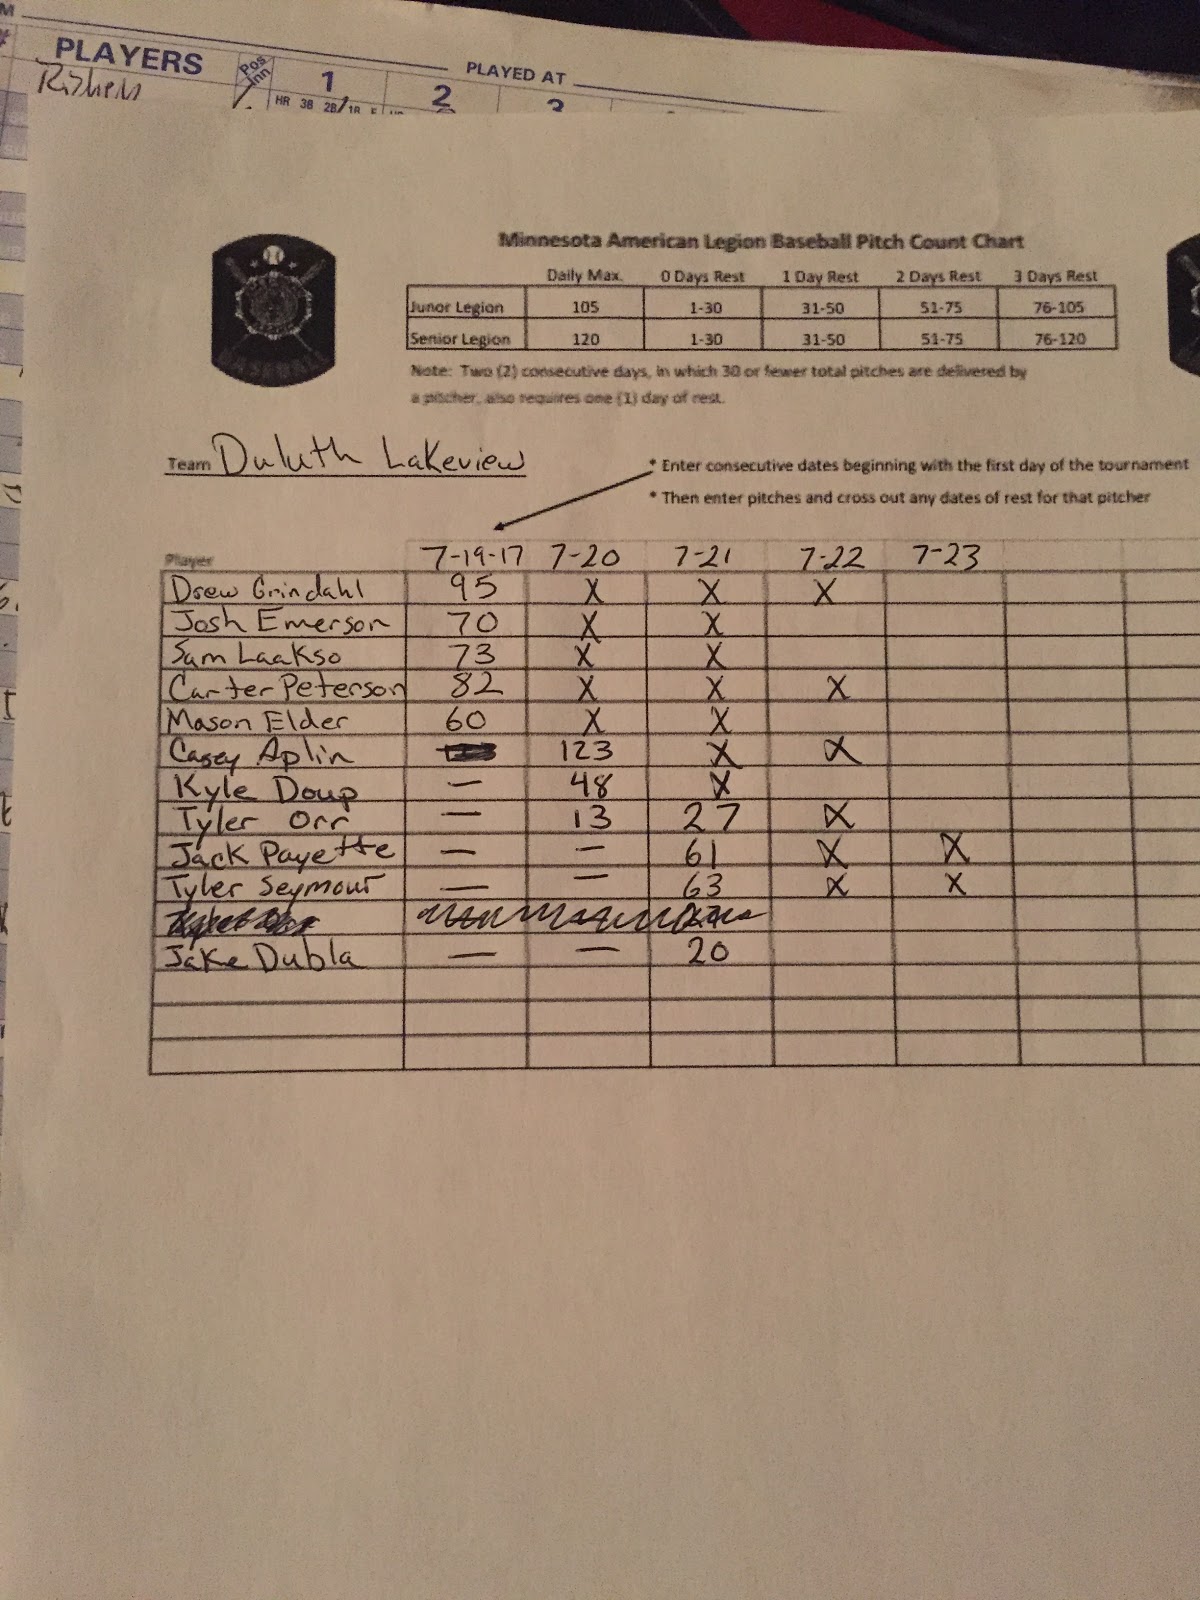 M
PLAYED AT
# PLAYERS Pos Inn 1 2 3
HR 3B 2B 1B E
Minnesota American Legion Baseball Pitch Count Chart
Daily Max. 0 Days Rest 1 Day Rest 2 Days Rest 3 Days Rest
Junor Legion 105 1-30 31-50 51-75 76-105
Senior Legion 120 1-30 31-50 51-75 76-120
Note: Two (2) consecutive days, in which 30 or fewer total pitches are delivered by
a pitcher, also requires one (1) day of rest.
BASEBALL
Team Duluth Lakeview
* Enter consecutive dates beginning with the first day of the tournament
* Then enter pitches and cross out any dates of rest for that pitcher
Player 7-19-17 7-20 7-21 7-22 7-23
Drew Grindahl 95 X X X
Josh Emerson 70 X X
Sam Laakso 73 X X
Carter Peterson 82 X X X
Mason Elder 60 X X
Casey Aplin 123 X X
Kyle Doup — 48 X
Tyler Orr — 13 27 X
Jack Payette — — 61 X X
Tyler Seymour — — 63 X X
Jake Dubla — — 20